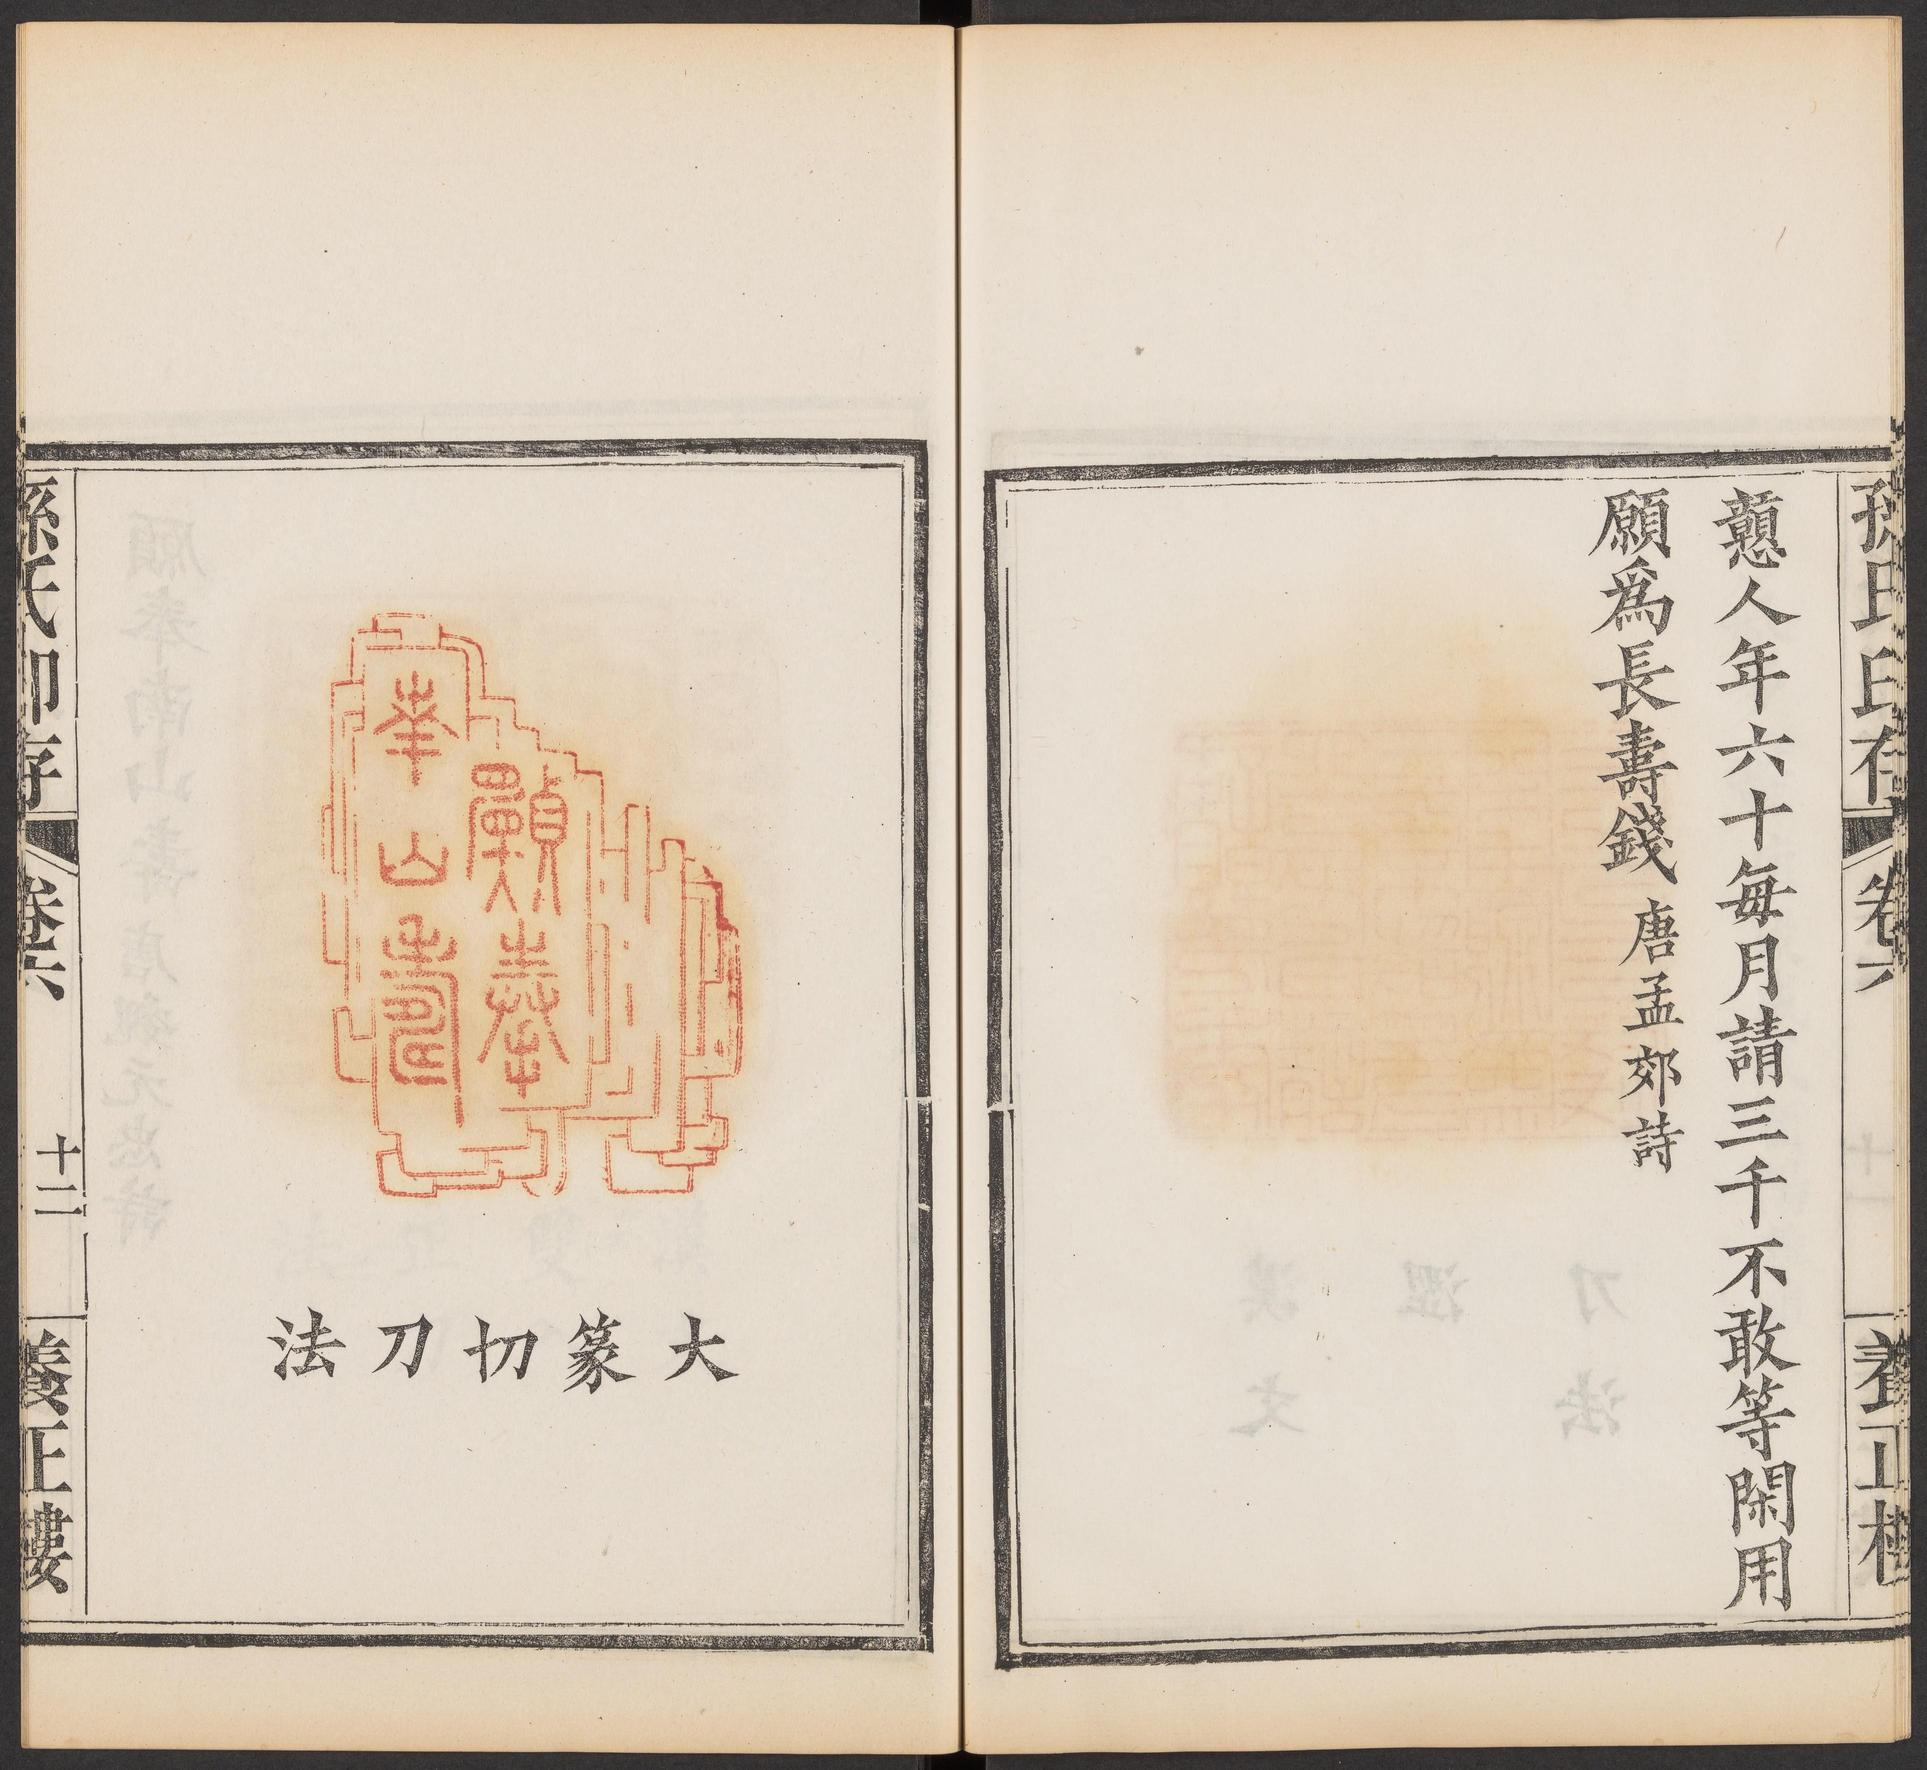 孫氏印存
卷六
養正樓
戇人年六十每月請三千不敢等閑用
願爲長壽錢 唐孟郊詩
願奉
南山壽
大篆切刀法
孫氏印存
卷六
十二
養正樓